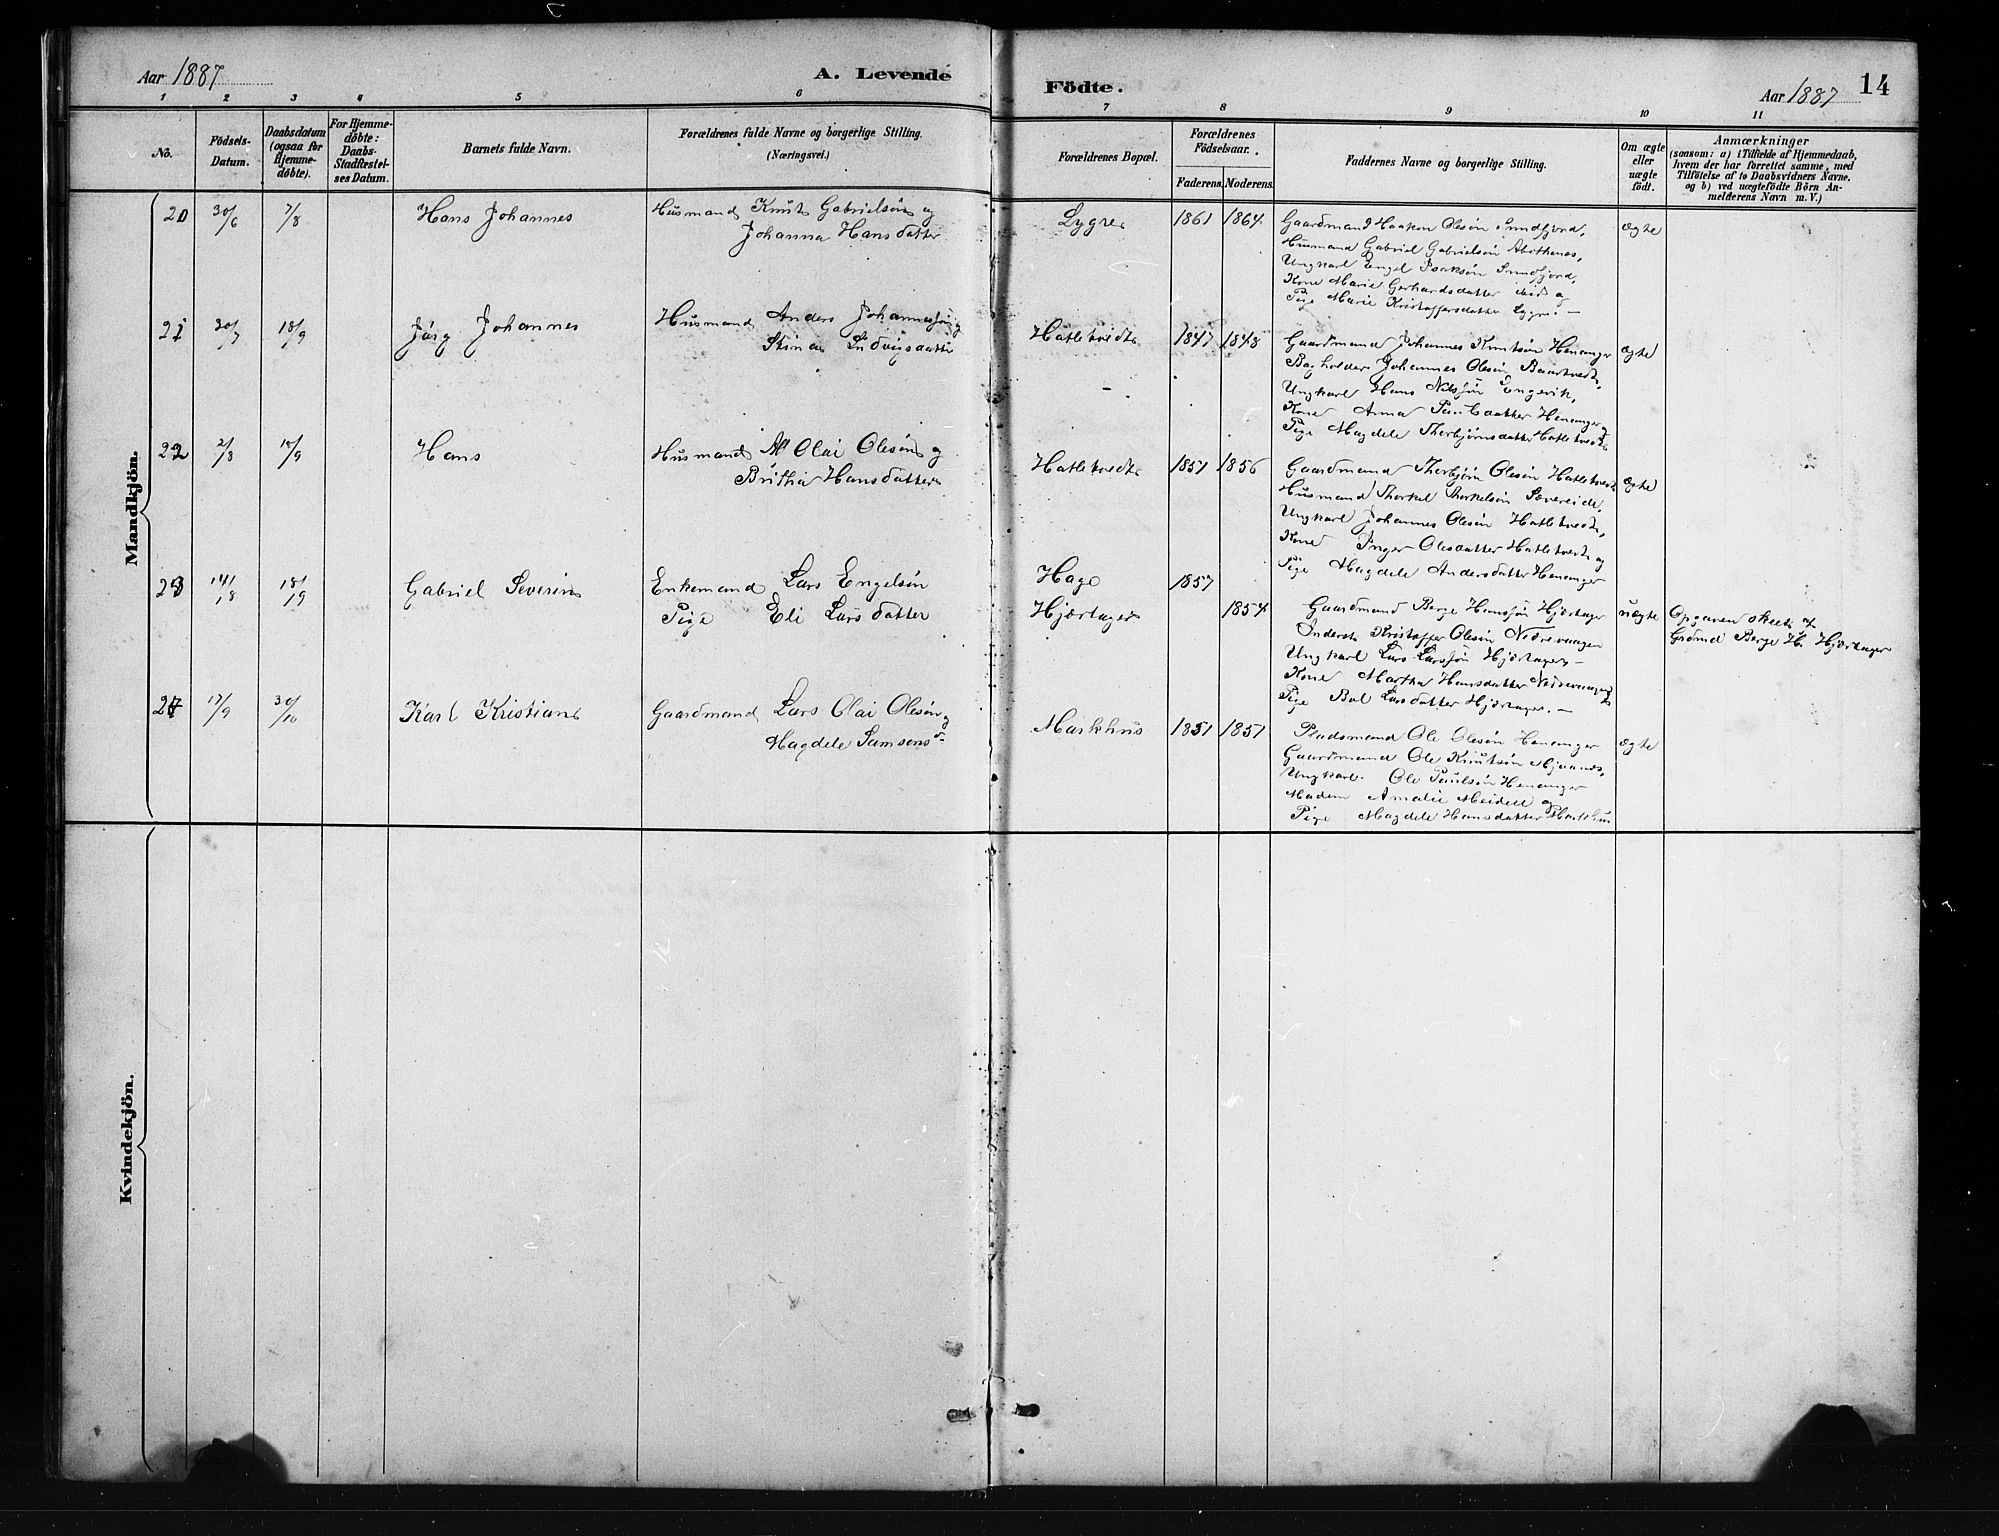 Aar 1887
A. Levende
Födte.
Aar 1887
14
1 2 3 4 5 6 7 8 9 10 11
No.
Födsels-
Datum.
Daabsdatum
(ogsaa for
Hjemme-
döbte).
For Hjemme-
döbte:
Daabs-
Stadfæstel-
ses Datum.
Barnets fulde Navn.
Forældrenes fulde Navne og borgerlige Stilling.
(Næringsvei.)
Forældrenes Bopæl.
Forældrenes
Födselsaar.
Faderens. Moderens.
Faddernes Navne og borgerlige Stilling.
Om ægte
eller
uægte
födt.
Anmærkninger
(saasom: a) i Tilfælde af Hjemmedaab,
hvem der har forrettet samme, med
Tilföielse af to Daabsvidners Navne,
og b) ved uægtefödte Börn An-
melderens Navn m. V.)
Mandkjön.
20 30/6 7/8 Hans Johannes
Husmand Knut Gabrielsön og
Johanna Hansdatter
Lygre 1861 1864
Gaardmand Haakon Olesön Sundfjord,
Husmand Gabriel Gabrielsön
Ungkarl Engel Isaksön Sundfjord,
Kone Marie Gerhardsdatter ibid og
Pige Marie Kristoffersdatter Lygre. —
ægte
21 30/7 18/9 Jörg Johannes
Husmand Anders Johannesön og
Stina Ludvigsdatter
Hatletvedt 1847 1848
Gaardmand Johannes Knutsön Henanger
Johannes Olesön
Ungkarl Hans Nilsjön Engevik,
Kone Anna Paulsdatter Henanger og
Pige Magdele Thorbjörnsdatter Hatletvedt
ægte
22 2/8 18/9 Hans
Husmand Olai Olesön og
Britha Hansdatter
Hatletvedt 1851 1856
Gaardmand Thorbjörn Olesön Hatletvedt
Husmand Thorkel Thorkelsön Sævereide,
Ungkarl Johannes Olesön Hatletvedt,
Kone Inger Olesdatter Hatletvedt og
Pige Magdele Andersdatter Henanger
ægte
23 14/8 18/9 Gabriel Severin
Enkemand Lars Engelsön
Pige Eli Larsdatter
Hage 1857
Hjortager 1854
Gaardmand Berge Hansjön Hjertager
Kristoffer Olesön Nedrevaagen
Ungkarl Lars Larsjön Hjertager —
Kone Martha Hansdatter Nedrevaagen og
Pige Bol Larsdatter Hjertager. —
uægte
Opgaven skeet af
Grdmd Berge H. Hjærtager
24 17/9 30/10 Karl Kristian
Gaardmand Lars Olai Olesön og
Magdele Samsonsd
Markhus 1851 1851
Pladsmand Ole Olesön Henanger
Gaardmand Ole Knutsön Mjaanes,
Ungkarl. Ole Paulsön Henanger
Madam Amalie Meidell og
Pige Magdele Hansdatter Markhus
ægte
Kvindekjön.